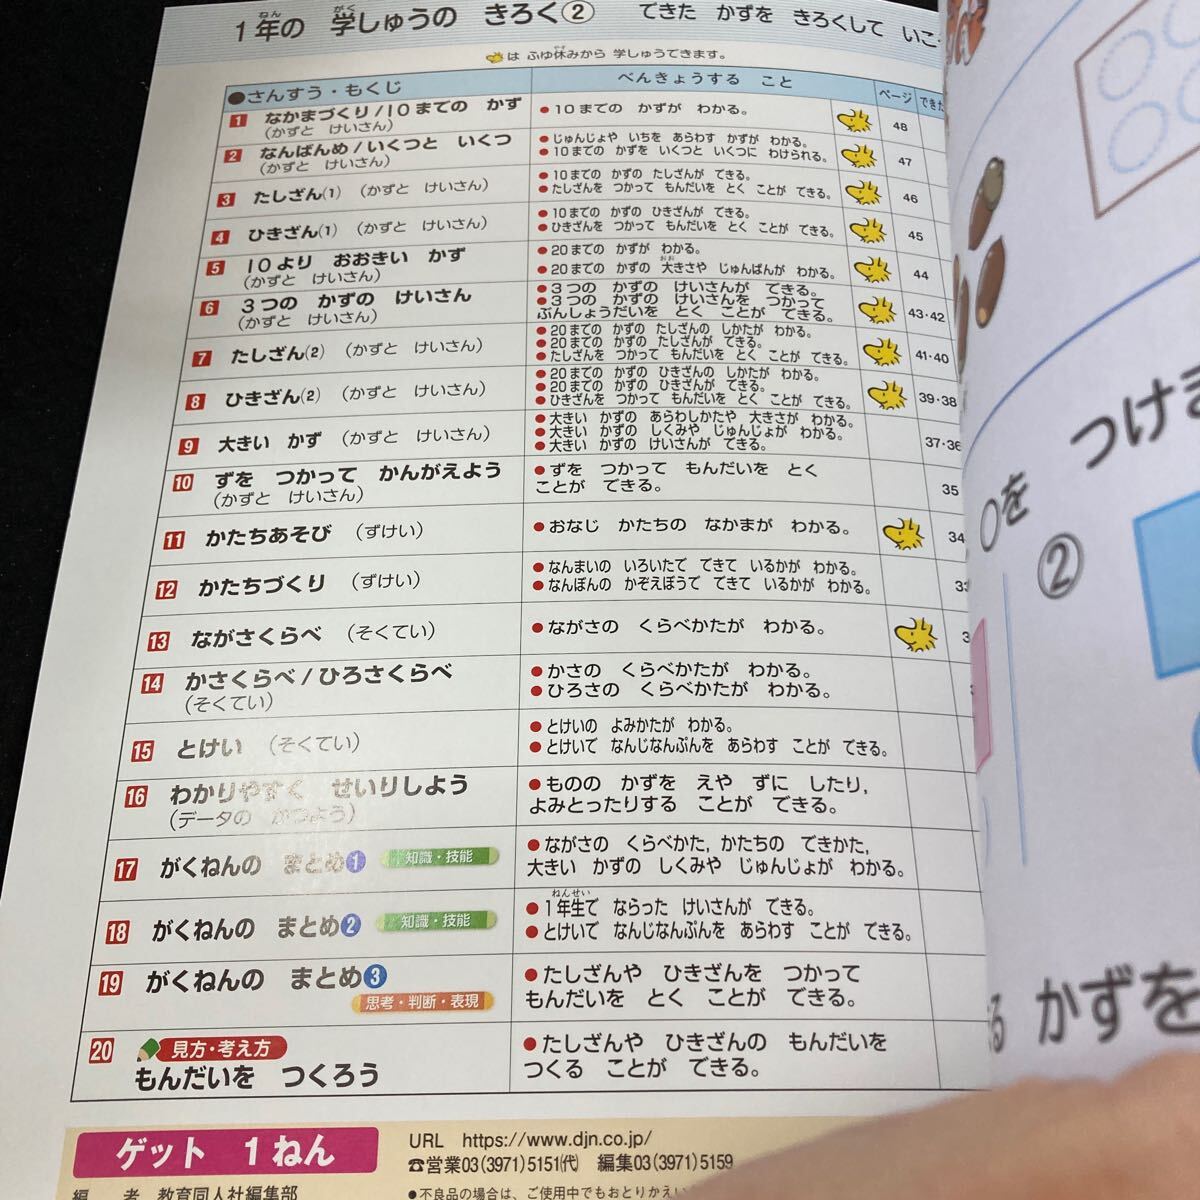 1年の 学しゅうの きろく② できた かずを きろくして いこ
ねん がく
は ふゆ休みから 学しゅうできます。
●さんすう・もくじ べんきょうする こと ページ できた
1 なかまづくり/10までの かず
(かずと けいさん)
●10までの かずが わかる。 48
2 なんばんめ/いくつと いくつ
(かずと けいさん)
●じゅんじょや いちを あらわす かずが わかる。
●10までの かずを いくつと いくつに わけられる。 47
3 たしざん(1) (かずと けいさん)
●10までの かずの たしざんが できる。
●たしざんを つかって もんだいを とく ことが できる。 46
4 ひきざん(1) (かずと けいさん)
●10までの かずの ひきざんが できる。
●ひきざんを つかって もんだいを とく ことが できる。 45
5 10より おおきい かず
(かずと けいさん)
●20までの かずが わかる。
おお
●20までの かずの 大きさや じゅんばんが わかる。 44
6 3つの かずの けいさん
(かずと けいさん)
●3つの かずの けいさんが できる。
●3つの かずの けいさんを つかって
ぶんしょうだいを とく ことが できる。 43・42
7 たしざん(2) (かずと けいさん)
●20までの かずの たしざんの しかたが わかる。
●20までの かずの たしざんが できる。
●たしざんを つかって もんだいを とく ことが できる。 41・40
8 ひきざん(2) (かずと けいさん)
●20までの かずの ひきざんの しかたが わかる。
●20までの かずの ひきざんが できる。
●ひきざんを つかって もんだいを とく ことが できる。 39・38
9 大きい かず (かずと けいさん)
●大きい かずの あらわしかたや 大きさが わかる。
●大きい かずの しくみや じゅんじょが わかる。
●大きい かずの けいさんが できる。 37・36
10 ずを つかって かんがえよう
(かずと けいさん)
●ずを つかって もんだいを とく
ことが できる。 35
11 かたちあそび (ずけい)
●おなじ かたちの なかまが わかる。 34
12 かたちづくり (ずけい)
●なんまいの いろいたで できて いるかが わかる。
●なんぼんの かぞえぼうで できて いるかが わかる。
13 ながさくらべ (そくてい)
●ながさの くらべかたが わかる。
14 かさくらべ/ひろさくらべ
(そくてい)
●かさの くらべかたが わかる。
●ひろさの くらべかたが わかる。
15 とけい (そくてい)
●とけいの よみかたが わかる。
●とけいで なんじなんぷんを あらわす ことが できる。
16 わかりやすく せいりしよう
(データの かつよう)
●ものの かずを えや ずに したり,
よみとったりする ことが できる。
17 がくねんの まとめ1 知識・技能
●ながさの くらべかた, かたちの できかた,
大きい かずの しくみや じゅんじょが わかる。
18 がくねんの まとめ2 知識・技能
ねんせい
●1年生で ならった けいさんが できる。
●とけいで なんじなんぷんを あらわす ことが できる。
19 がくねんの まとめ3
思考・判断・表現
●たしざんや ひきざんを つかって
もんだいを とく ことが できる。
20 見方・考え方
もんだいを つくろう
●たしざんや ひきざんの もんだいを
つくる ことが できる。
ゲット 1ねん
URL https://www.djn.co.jp/
☎営業03(3971)5151㈹ 編集03(3971)5159
編 者 教育同人社編集部
●不良品の場合は、ご使用中でもおとりかえい
つけま
○を
②
かずを